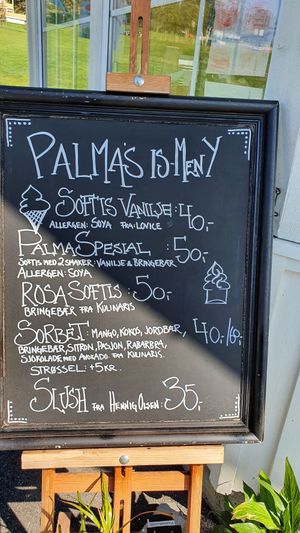 PALMA'S IS-MENY
SOFTIS VANILJE: 40,-
ALLERGEN: SOYA FRA: LOVICE
PALMA SPESIAL: 50,-
SOFTIS MED 2 SMAKER: VANILJE & BRINGEBÆR
ALLERGEN: SOYA
ROSA SOFTIS: 50,-
BRINGEBÆR FRA KULINARIS
SORBET: MANGO, KOKOS, JORDBÆR, 40,-/60,-
BRINGEBÆR, SITRON, PASJON, RABARBRA,
SJOKOLADE MED AVOKADO FRA KULINARIS.
STRØSSEL: +5 KR.
SLUSH FRA HENNIG OLSEN: 35,-